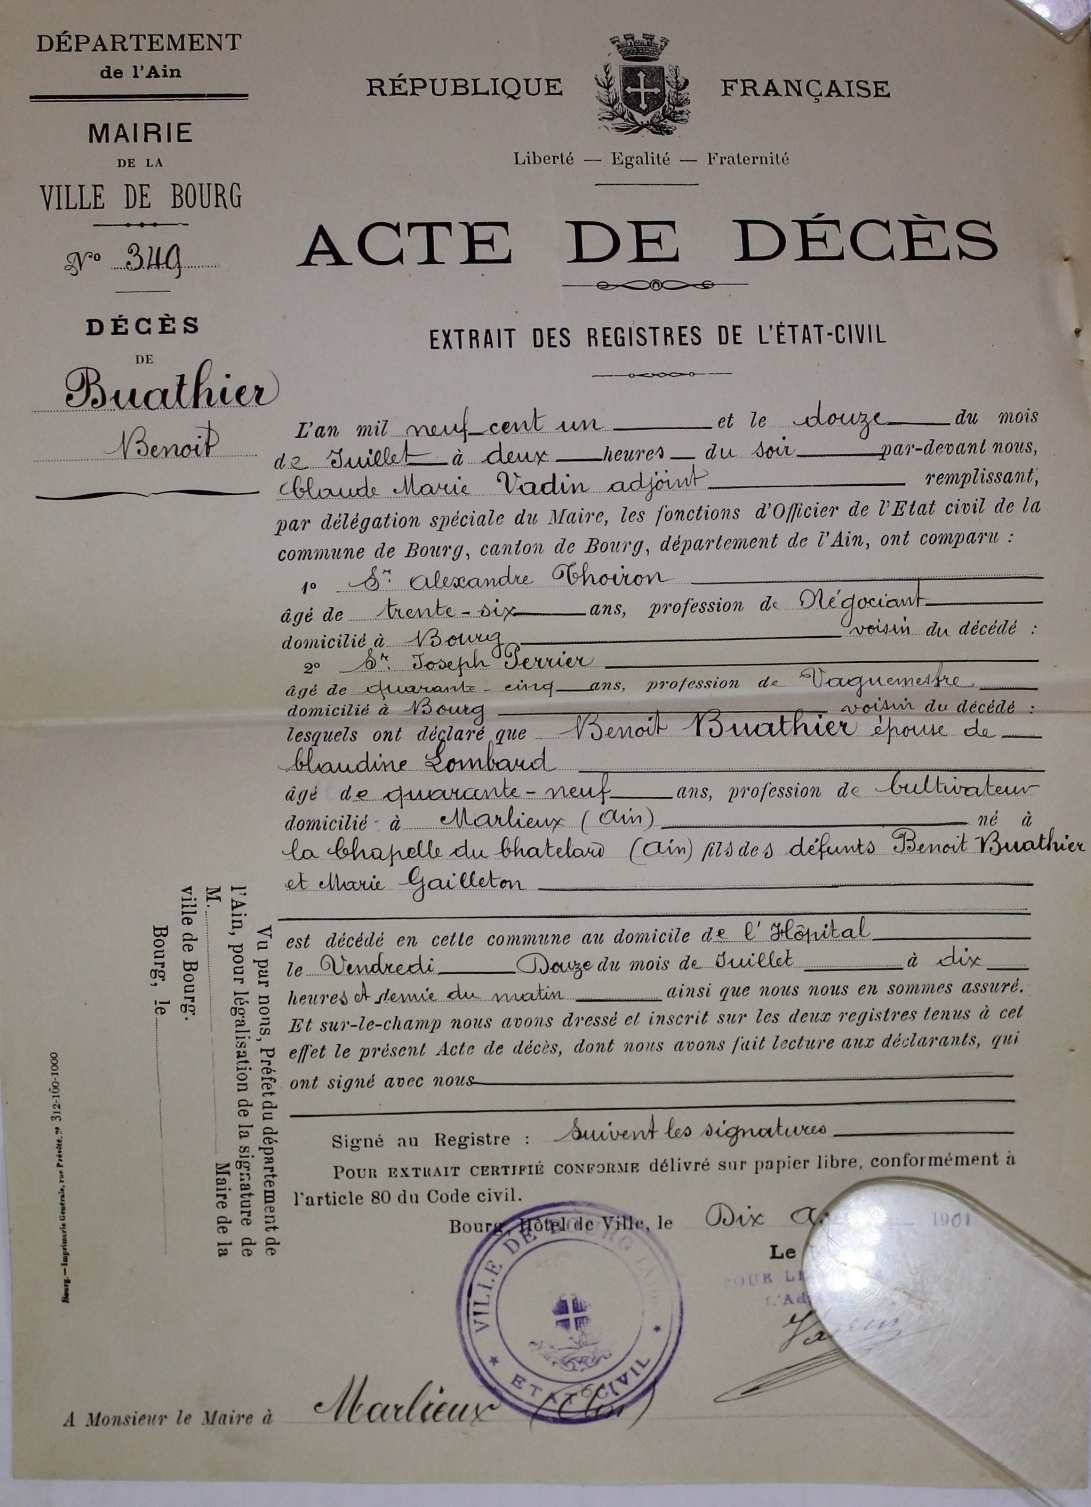 DÉPARTEMENT
de l'Ain
MAIRIE
DE LA
VILLE DE BOURG
Nº 349
DÉCÈS
DE
Buathier
Benoit
RÉPUBLIQUE FRANÇAISE
Liberté — Egalité — Fraternité
ACTE DE DÉCÈS
EXTRAIT DES REGISTRES DE L'ÉTAT-CIVIL
L'an mil neuf cent un et le douze du mois
de Juillet à deux heures du soir par-devant nous,
Claude Marie Vadin adjoint remplissant,
par délégation spéciale du Maire, les fonctions d'Officier de l'Etat civil de la
commune de Bourg, canton de Bourg, département de l'Ain, ont comparu :
1º Sr. Alexandre Thoiron
âgé de trente-six ans, profession de Négociant
domicilié à Bourg voisin du décédé :
2º Sr. Joseph Perrier
âgé de quarante-cinq ans, profession de Vaguemestre
domicilié à Bourg voisin du décédé :
lesquels ont déclaré que Benoit Buathier épouse de
Claudine Lombard
âgé de quarante-neuf ans, profession de Cultivateur
domicilié à Marlieux (Ain) né à
la Chapelle du Chatelard (Ain) fils des défunts Benoit Buathier
et Marie Gailleton
est décédé en cette commune au domicile de l'Hôpital
le Vendredi Douze du mois de Juillet à dix
heures et demie du matin ainsi que nous nous en sommes assuré.
Et sur-le-champ nous avons dressé et inscrit sur les deux registres tenus à cet
effet le présent Acte de décès, dont nous avons fait lecture aux déclarants, qui
ont signé avec nous
Signé au Registre : Suivent les signatures
POUR EXTRAIT CERTIFIÉ CONFORME délivré sur papier libre, conformément à
l'article 80 du Code civil.
Bourg, Hôtel de Ville, le Dix 1901
Le
POUR LE
L'Ad
VILLE DE BOURG (AIN)
ETAT CIVIL
A Monsieur le Maire à Marlieux (Ain)
Vu par nous, Préfet du département de
l'Ain, pour légalisation de la signature de
M. Maire de la
ville de Bourg.
Bourg, le
Bourg. — Imprimerie Générale, rue 312-100-1000